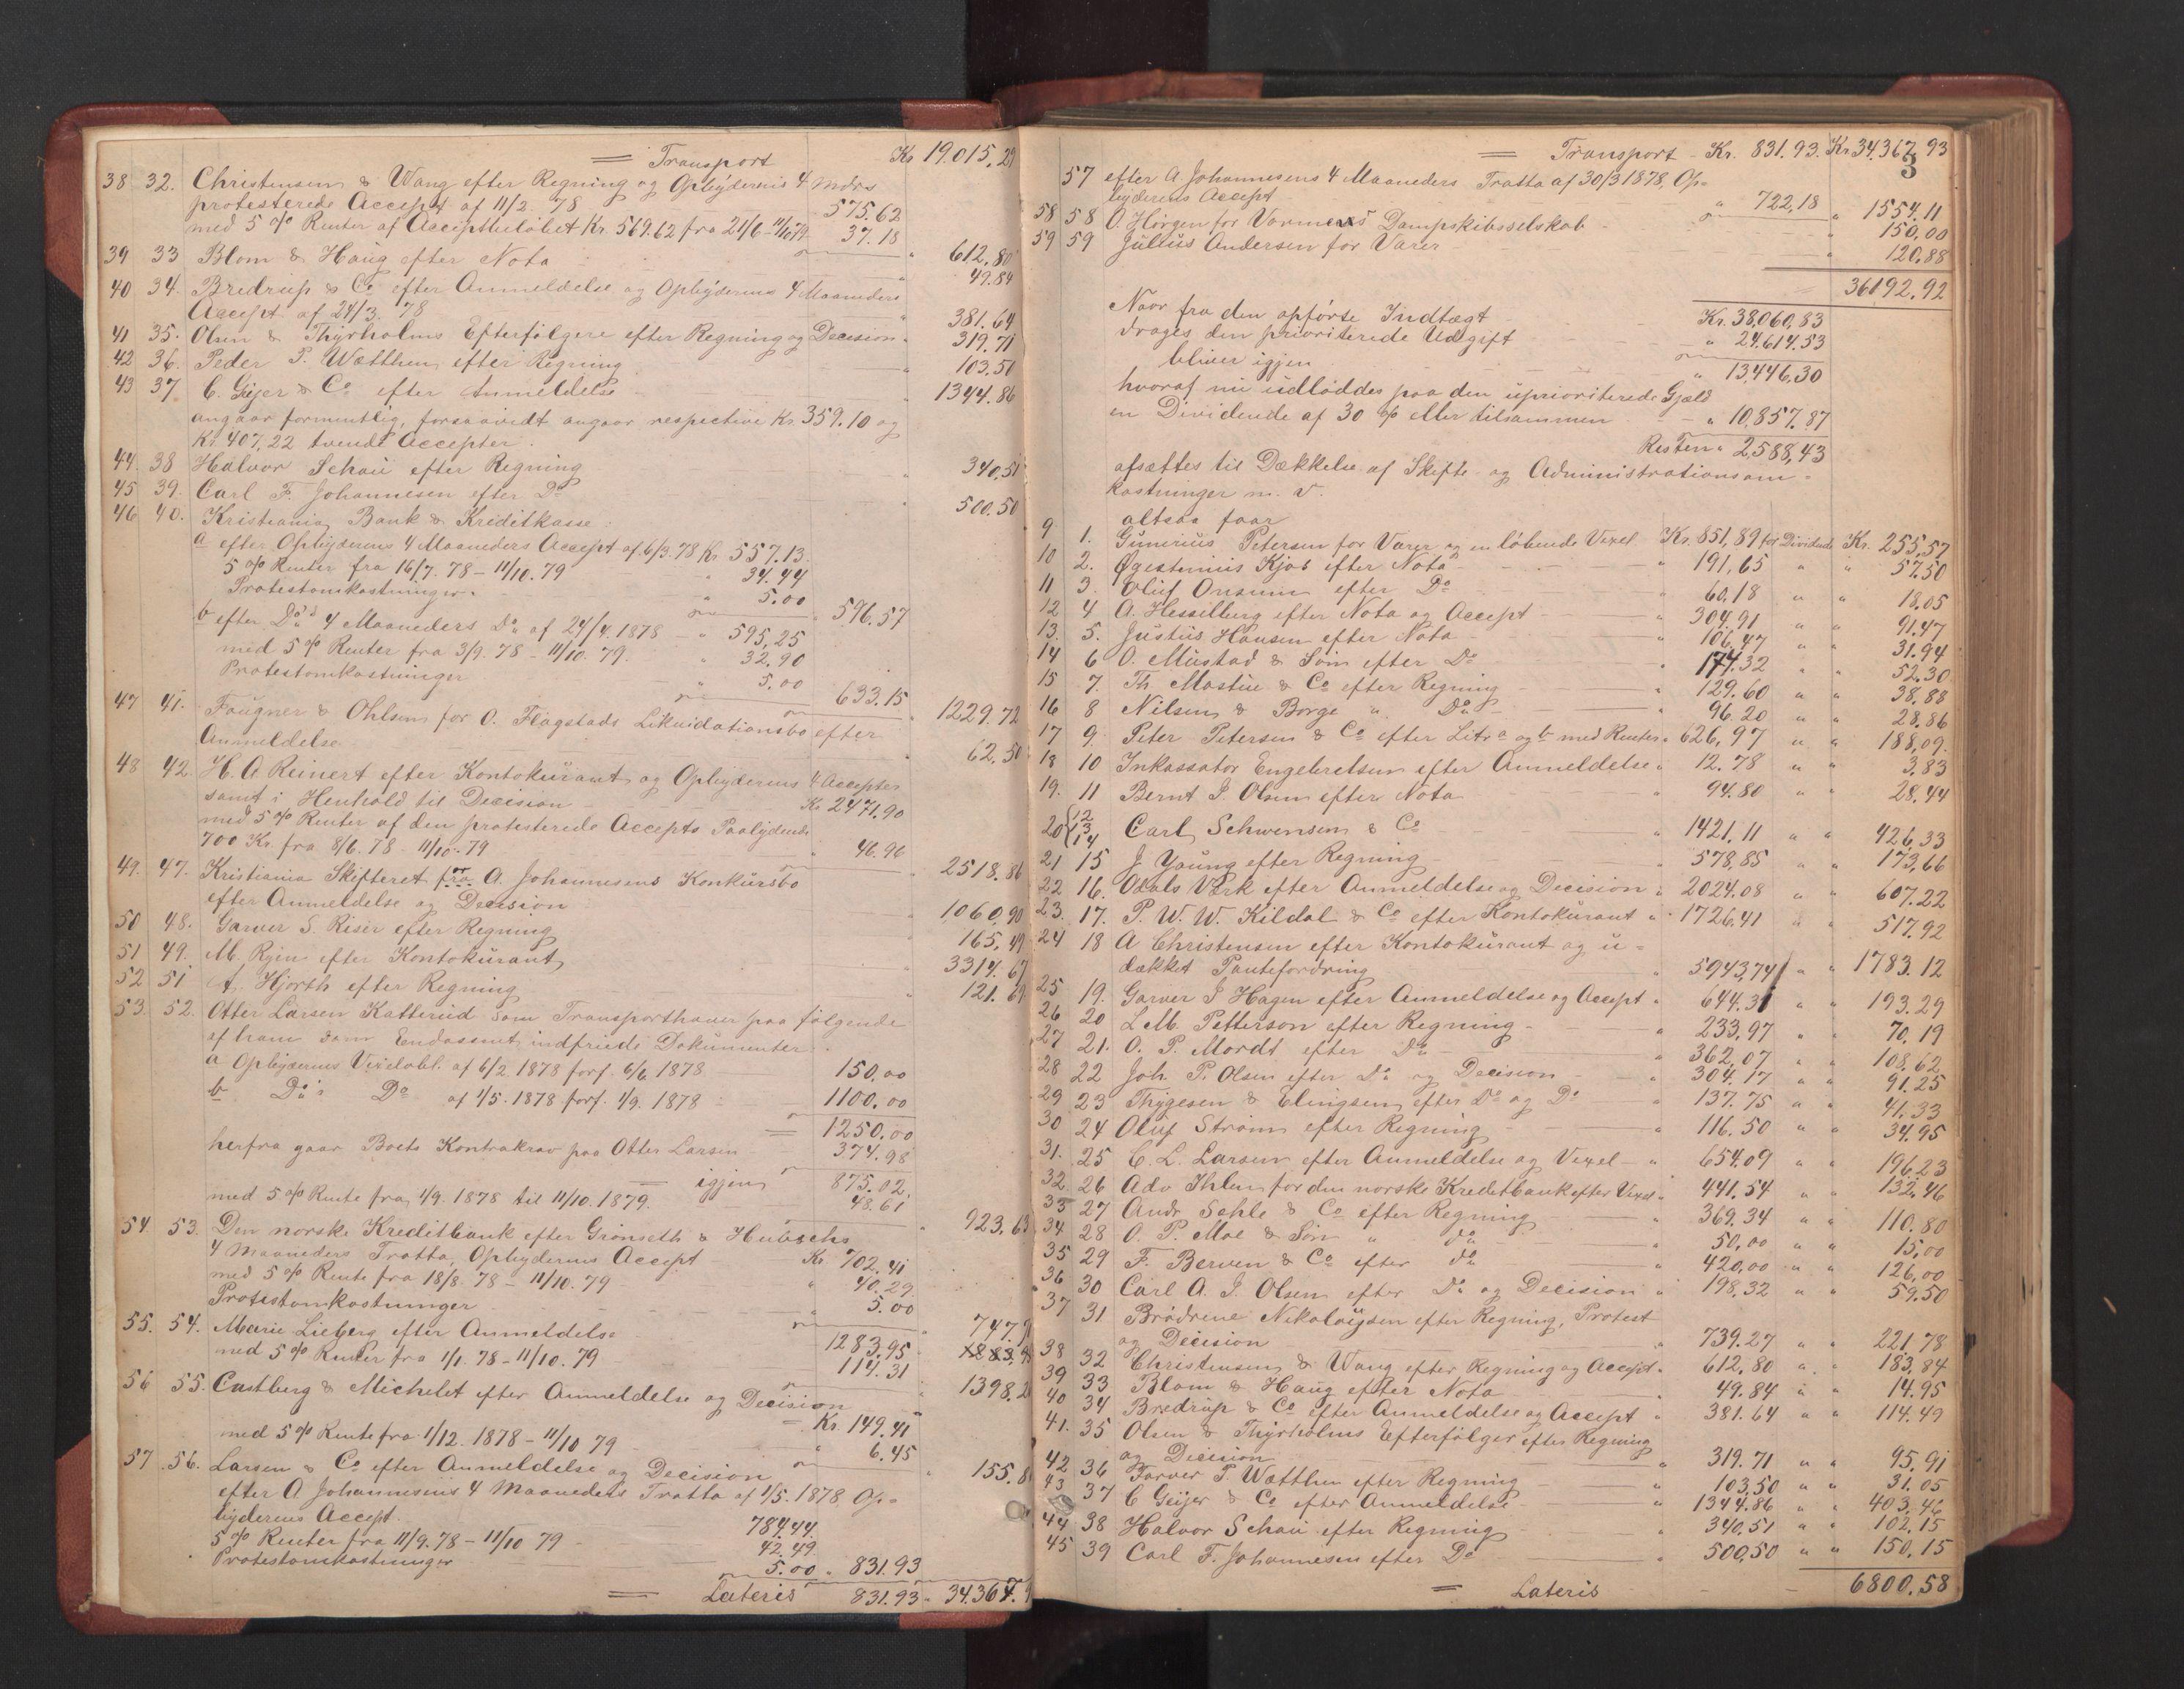 = Transport Kr 19.015,29
38 32. Christensen & Wang efter Regning og Opbyderens 4 Mdrs
protesterede Accept af 11/2. 78 575.62
med 5 % Renter af Acceptbeløbet Kr. 569.62 fra 21/6 - 11/10 79 37.18
" 612,80
39 33 Blom & Haug efter Nota " 49.84
40 34. Bredrup & Co efter Anmeldelse og Opbyderens 4 Maaneders
Accept af 24/3. 78 " 381.64
41 35. Olsen & Thyrholms Efterfølgere efter Regning og Decision " 319.71
42 36. Peder P. Wætthen efter Regning " 103.50
43 37. C. Geijer & Co efter Anmeldelse " 1344.86
angaar formentlig, forsaavidt angaar respective Kr. 359.10 og
Kr 407,22 tvende Accepter.
44. 38 Halvor Schau efter Regning " 340,51
45 39. Carl F. Johannesen efter Do " 500.50
46 40. Kristiania Bank & Kreditkasse:
a efter Opbyderens 4 Maaneders Accept af 6/3. 78 Kr. 557.13.
5 % Renter fra 16/7. 78 - 11/10. 79 " 34.44
Protestomkostninger. " 5.00
" 596.57
b efter Do's 4 Maaneders Do af 24/4. 1878 - " 595,25
med 5 % Renter fra 3/9. 78 - 11/10. 79. " 32.90
Protestomkostninger " 5.00
633.15 " 1229.72
47 41. Faugner & Ohlsen for O. Flagstads Likvidationsbo efter
Anmeldelse " 62,50
48 42. H. A. Reinert efter Kontokurant og Opbyderens 4 Accepter
samt i Henhold til Decision Kr. 2471.90
med 5 % Renter af den protesterede Accepts Paalydende
700 Kr. fra 8/6. 78 - 11/10. 79 " 46.96
" 2518.86
49. 47. Kristiania Skifteret for A. Johannesens Konkursbo
efter Anmeldelse og Decision " 1060,90
50 48. Garver S. Riser efter Regning " 165,49
51 49. M. Ryen efter Kontokurant " 3314.67
52 51 A. Hjorth efter Regning " 121.69
53. 52. Otter Larsen Katterud som Transporthaver paa følgende
af ham som Endossent indfriede Dokumenter.
a Opbyderens Vexelobl. af 6/2. 1878 forf. 6/6 1878 150,00
b Do's Do af 1/5. 1878 forf. 1/9. 1878 1100,00
= 1250,00
herfra gaar Boets Kontrakrav paa Otter Larsen 374.98
= igjen 875.02.
med 5 % Rente fra 1/9. 1878 til 11/10. 1879. 48.61
" 923,63
54. 53. Den norske Kreditbank efter Grønseth & Hübschs
4 Maaneders Tratta, Opbyderens Accept Kr. 702.41
med 5 % Rente fra 18/8. 78 - 11/10. 79 " 40.29.
Protestomkostninger " 5.00
" 747.
55. 54. Marie Lieberg efter Anmeldelse 1283,95
med 5 % Renter fra 1/1. 78 - 11/10. 79 114.31
" 1398,2
56 55. Castberg & Michelet efter Anmeldelse og Decision
= Kr. 149,41
med 5 % Rente fra 1/12. 1878 - 11/10 79 " 6.45
" 155.8
57 56. Larsen & Co efter Anmeldelse og Decision
efter A Johannesens 4 Maaneders Tratta af 1/5. 1878, Op=
byderens Accept. 784.44.
5 % Renter fra 11/9. 78 - 11/10 79 42.49.
Protestomkostninger 5.00 " 831.93
= Lateris 831.93 " 34.367.9
= Transport Kr. 831.93. Kr. 34.367,93
3
57 efter A. Johannesens 4 Maaneders Tratta af 30/3 1878, Op=
byderens Accept " 722,18 " 1554.11
58 58 O. Hørgen for Vormens Dampskibsselskab " 150,00
59 59 Julius Andersen for Varer " 120,88
= 36192.92
Naar fra den opførte Indtægt Kr. 38,060,83
drages den prioriterede Udgift " 24.614.53
bliver igjen " 13,446,30
hvoraf nu udloddes paa den uprioriterede Gjæld
en Dividende af 30 % eller tilsammen " 10,857.87
Resten " 2,588,43
afsættes til Dækkelse af Skifte og Administrationsom=
kostninger m. v.
altsaa faar
9. 1. Gunerius Petersen for Varer og en løbende Vexel Kr. 851,89 for Dividende Kr. 255,57
10 2. Øgestenius Kjos efter Nota " 191,65 " " 57.50
11 3. Oluf Onsum efter Do " 60,18 " " 18,05
12 4 A. Hesselberg efter Nota og Accept " 304.91 " " 91.47
13. 5. Justus Hansen efter Nota " 106,47 " " 31.94
14 6 O. Mustad & Søn efter Do " 174.32 " " 52.30
15 7. Th. Mostue & Co efter Regning " 129.60 " " 38.88
16 8 Nilsen & Borge " Do " 96.20 " " 28.86
17 9. Peter Petersen & Co efter Litr a og b med Renter " 626,97 " " 188,09.
18 10 Inkassator Engebretsen efter Anmeldelse " 12.78 " " 3,83
19. 11 Bernt J. Olsen efter Nota " 94.80 " " 28,44
20 {12 13 14 Carl Schwensen & Co " 1421.11 " " 426,33
21 15 J Young efter Regning " 578,85 " " 173,66
22 16. Odals Værk efter Anmeldelse og Decision " 2024.08 " " 607.22
23. 17. P. W. W. Kildal & Co efter Kontokurant " 1726,41 " " 517.92
24 18 A Christensen efter Kontokurant og u=
dækket Pantefordring " 5943,74 " " 1783.12
25 19. Garver J Hagen efter Anmeldelse og Accept " 644.31 " " 193.29
26 20 L. M. Petterson efter Regning " 233,97 " " 70.19
27 21. O. P. Mordt efter Do " 362,07 " " 108,62
28 22 Joh. P. Olsen efter Do og Decision " 304.17 " " 91.25
29 23 Thygesen & Elingsen efter Do og Do " 137.75 " " 41.33
30 24 Oluf Strøm efter Regning " 116.50 " " 34.95
31. 25 C. L. Larsen efter Anmeldelse og Vexel " 654.09 " " 196,23
32. 26 Adv Ihlen for den norske Kreditbank efter Vexel " 441.54 " " 132,46
33 27 Andr. Sehle & Co efter Regning " 369.34 " " 110.80
34 28 O. P. Moe & Søn " do " 50,00 " " 15,00
35 29 F. Berven & Co efter do " 420,00 " " 126,00
36 30 Carl A. J. Olsen efter Do og Decision " 198,32 " " 59.50
37 31 Brødrene Nikolaysen efter Regning, Protest
og Decision " 739.27 " " 221,78
38 32 Christensen & Wang efter Regning og Accept " 612,80 " " 183,84
39 33 Blom & Haug efter Nota " 49.84 " " 14.95
40 34 Bredrup & Co efter Anmeldelse og Accept " 381.64 " " 114.49
41. 35 Olsen & Thyrholms Efterfølger efter Regning
og Decision " 319.71 " " 95.91
42 36 Farver P. Wætthen efter Regning " 103,50 " " 31.05
43 37 C Geijer & Co efter Anmeldelse " 1344.86 " " 403,46
44 38 Halvor Schau efter Regning " 340,51 " " 102.15
45 39 Carl F. Johannesen efter Do " 500,50 " " 150.15
= Lateris 6800.58